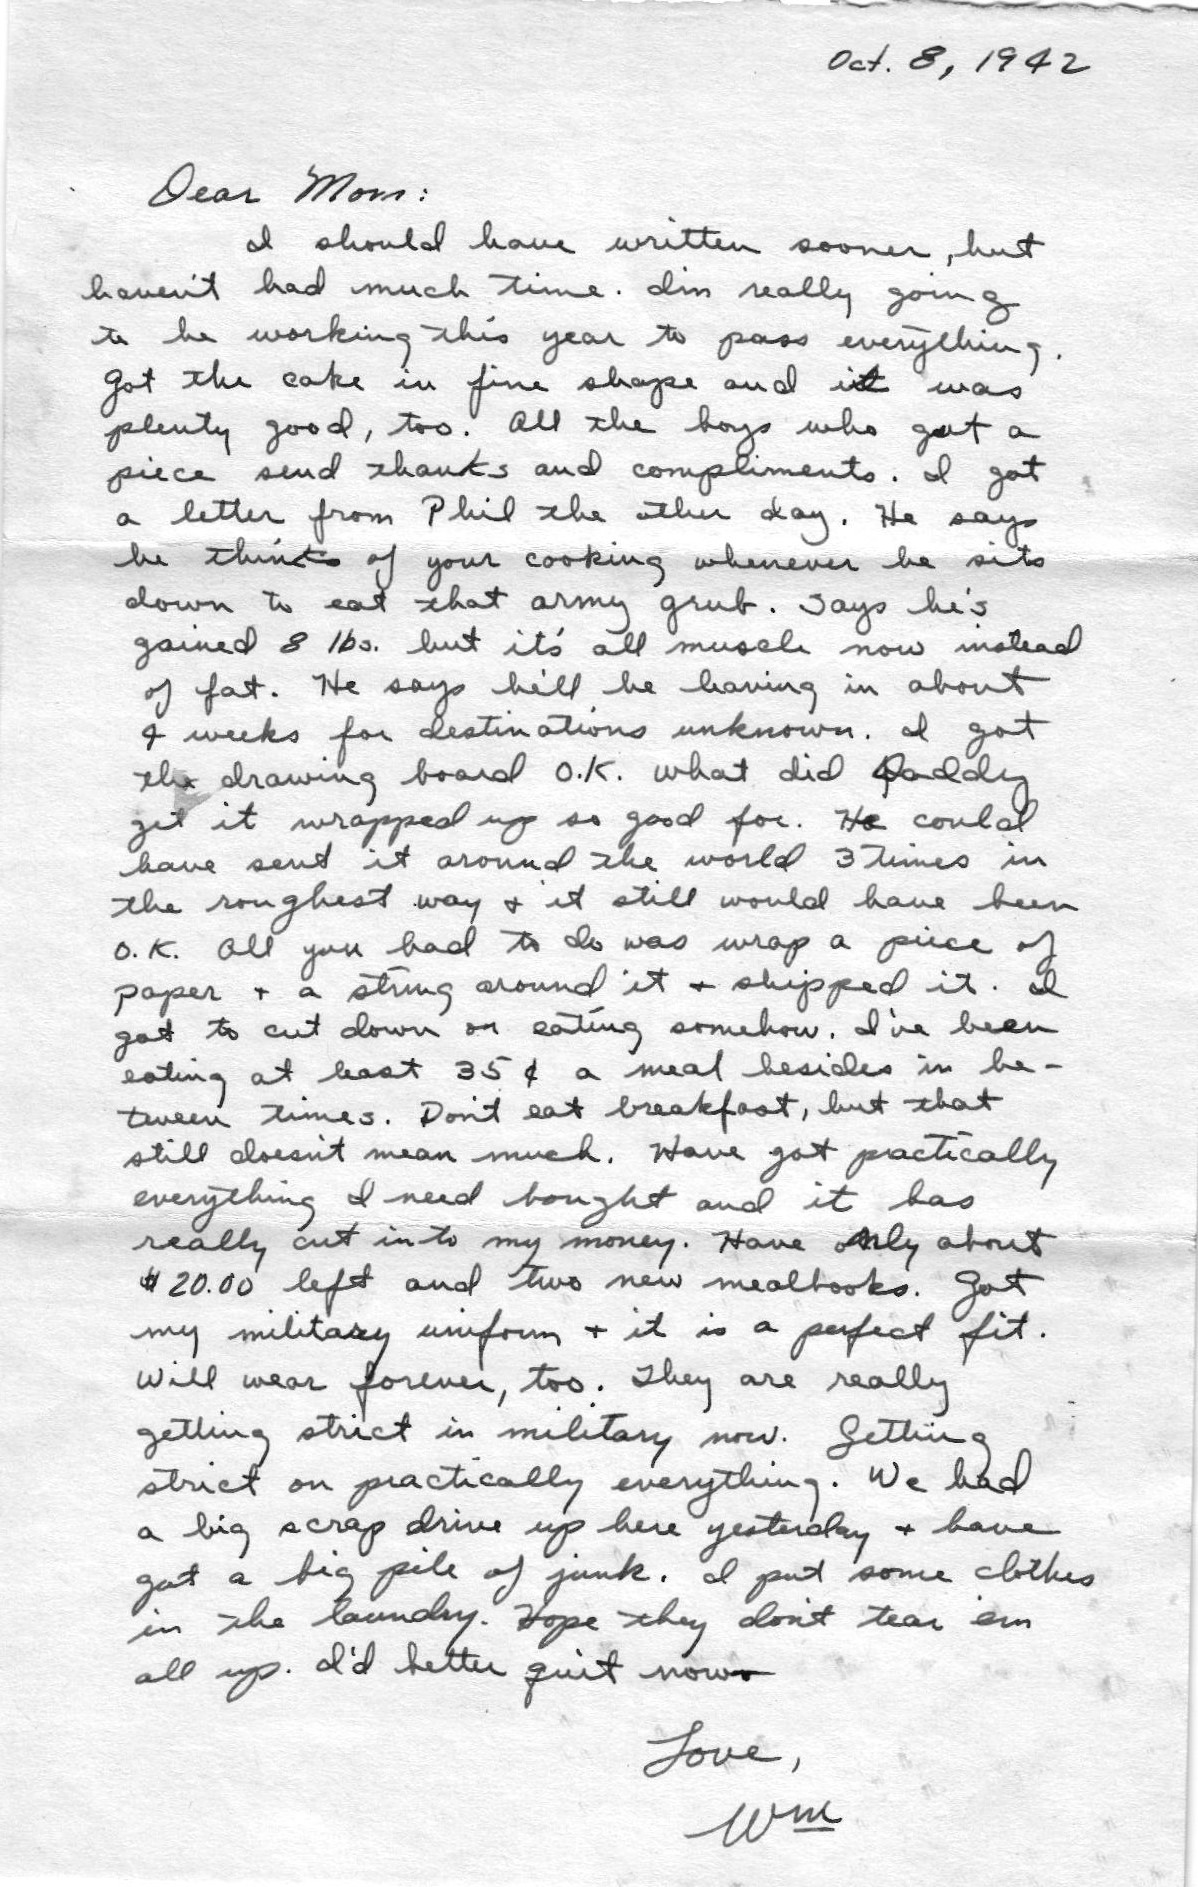 Oct. 8, 1942
Dear Mom:
I should have written sooner, but
haven't had much time. I'm really going
to be working this year to pass everything.
Got the cake in fine shape and it was
plenty good, too. All the boys who got a
piece send thanks and compliments. I got
a letter from Phil the other day. He says
he thinks of your cooking whenever he sits
down to eat that army grub. Says he's
gained 8 lbs. but it's all muscle now instead
of fat. He says he'll be leaving in about
4 weeks for destinations unknown. I got
the drawing board O.K. What did Daddy
get it wrapped up so good for. He could
have sent it around the world 3 times in
the roughest way + it still would have been
O.K. All you had to do was wrap a piece of
paper + a string around it + shipped it. I
got to cut down on eating somehow. I've been
eating at least 35¢ a meal besides in be-
tween times. Don't eat breakfast, but that
still doesn't mean much. Have got practically
everything I need bought and it has
really cut into my money. Have only about
$20.00 left and two new mealbooks. Got
my military uniform + it is a perfect fit.
Will wear forever, too. They are really
getting strict in military now. Getting
strict on practically everything. We had
a big scrap drive up here yesterday + have
got a big pile of junk. I put some clothes
in the laundry. Hope they don't tear 'em
all up. I'd better quit now
Love,
Wm